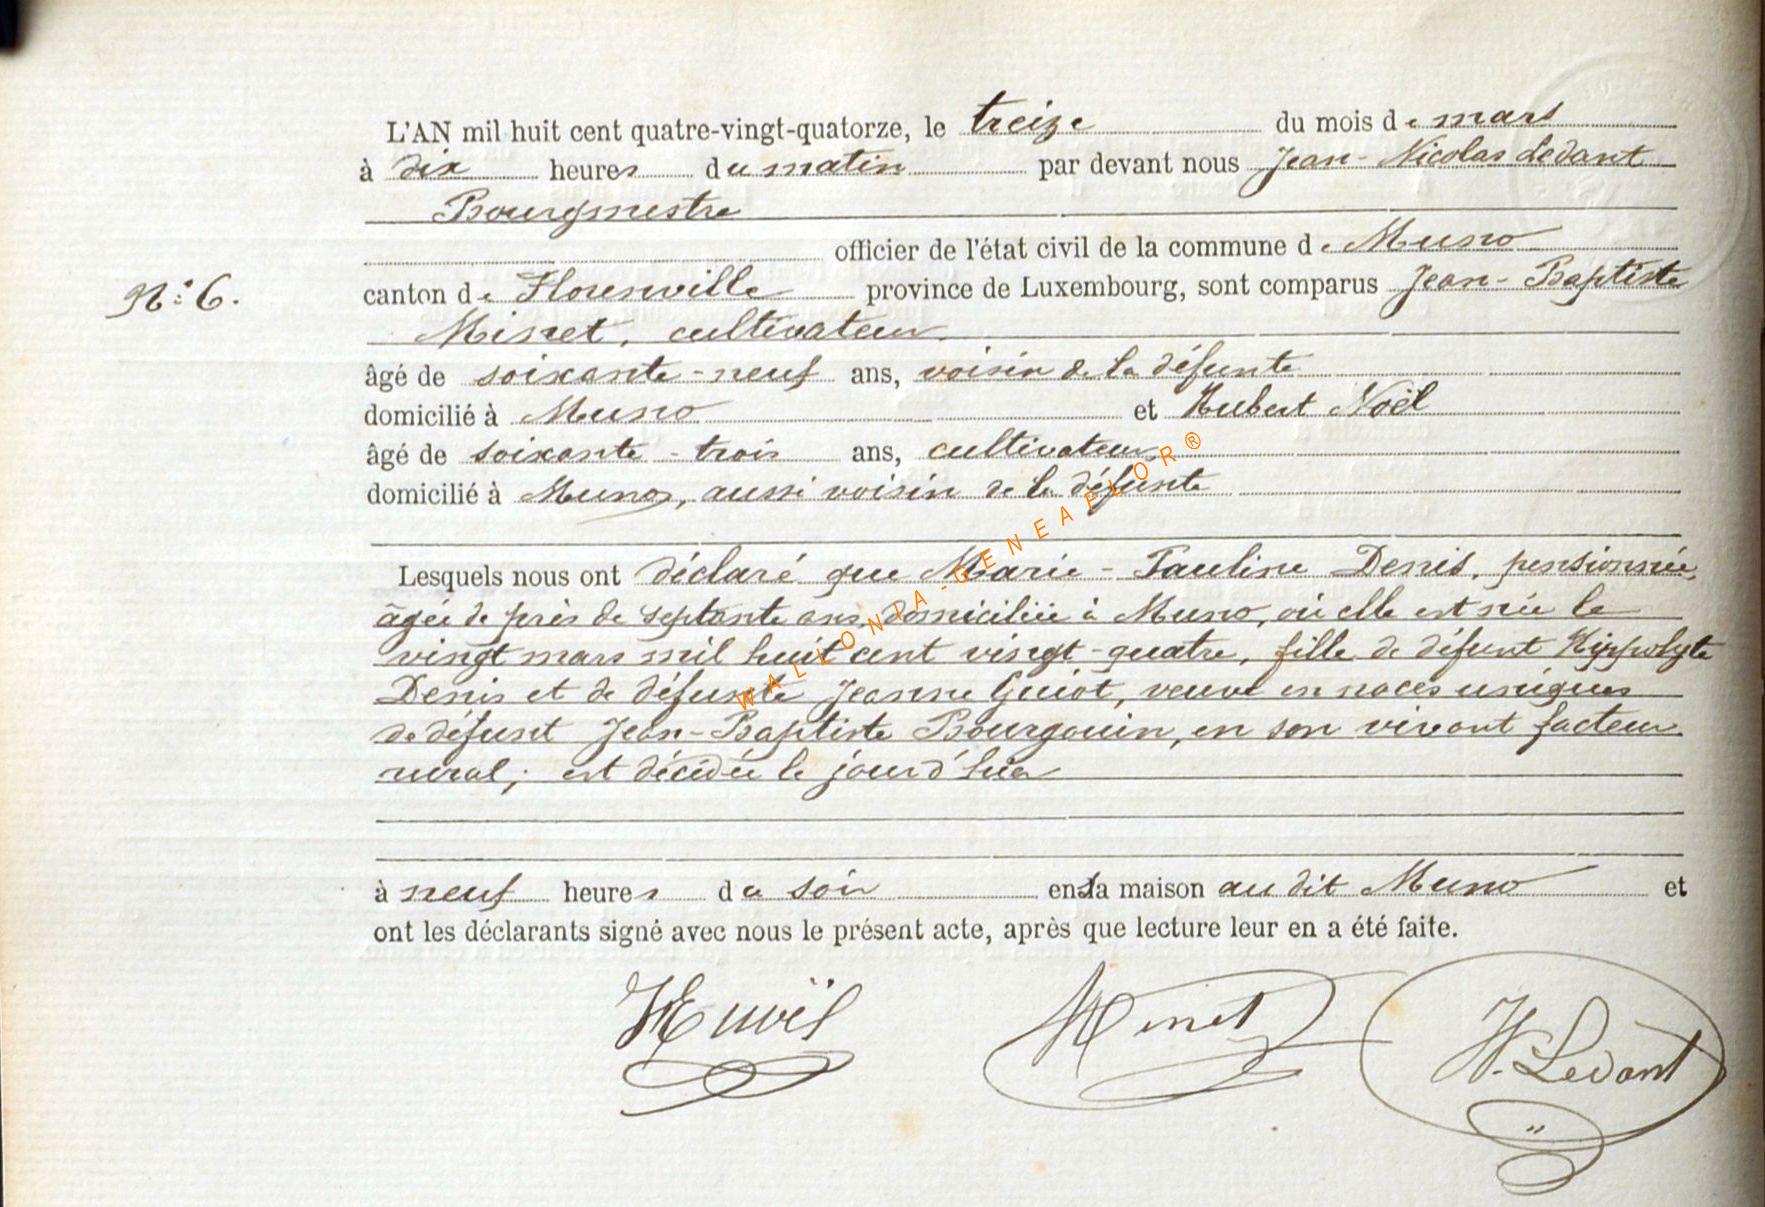 L'AN mil huit cent quatre-vingt-quatorze, le treize du mois de mars
à dix heures du matin par devant nous Jean-Nicolas Ledant
Bourgmestre
officier de l'état civil de la commune de Muno
N° 6.
canton de Florenville province de Luxembourg, sont comparus Jean-Baptiste
Minet, cultivateur
âgé de soixante-neuf ans, voisin de la défunte
domicilié à Muno et Hubert Noël
âgé de soixante-trois ans, cultivateur
domicilié à Muno, aussi voisin de la défunte
Lesquels nous ont déclaré que Marie-Pauline Denis, pensionnée,
âgée de près de septante ans, domiciliée à Muno, où elle est née le
vingt mars mil huit cent vingt-quatre, fille de défunt Hyppolyte
Denis et de défunte Jeanne Guiot, veuve en noces uniques
de défunt Jean-Baptiste Bourgouin, en son vivant facteur
rural; est décédée le jour d'hier
à neuf heures du soir en sa maison au dit Muno et
ont les déclarants signé avec nous le présent acte, après que lecture leur en a été faite.
H Noël Minet N. Ledant
WALLONIA-GENEAFLOR®